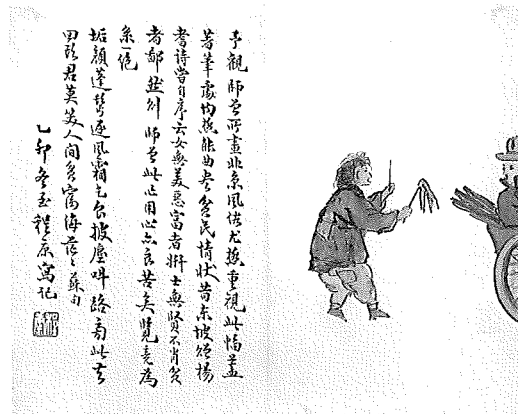 予觀師曾所畫北京風俗尤極重視此幀蓋
著筆處均極能曲盡貧民情狀昔東坡贈楊
耆詩嘗自序云女無美惡富者妍士無賢不肖貧
者鄙然則師曾此用心亦良苦矣覽竟為
系一絕
垢顏蓬鬢逐風霜乞食披塵叫路旁此去
回頭君莫笑人間貧富海茫茫蘇句
乙卯冬至程康寫記